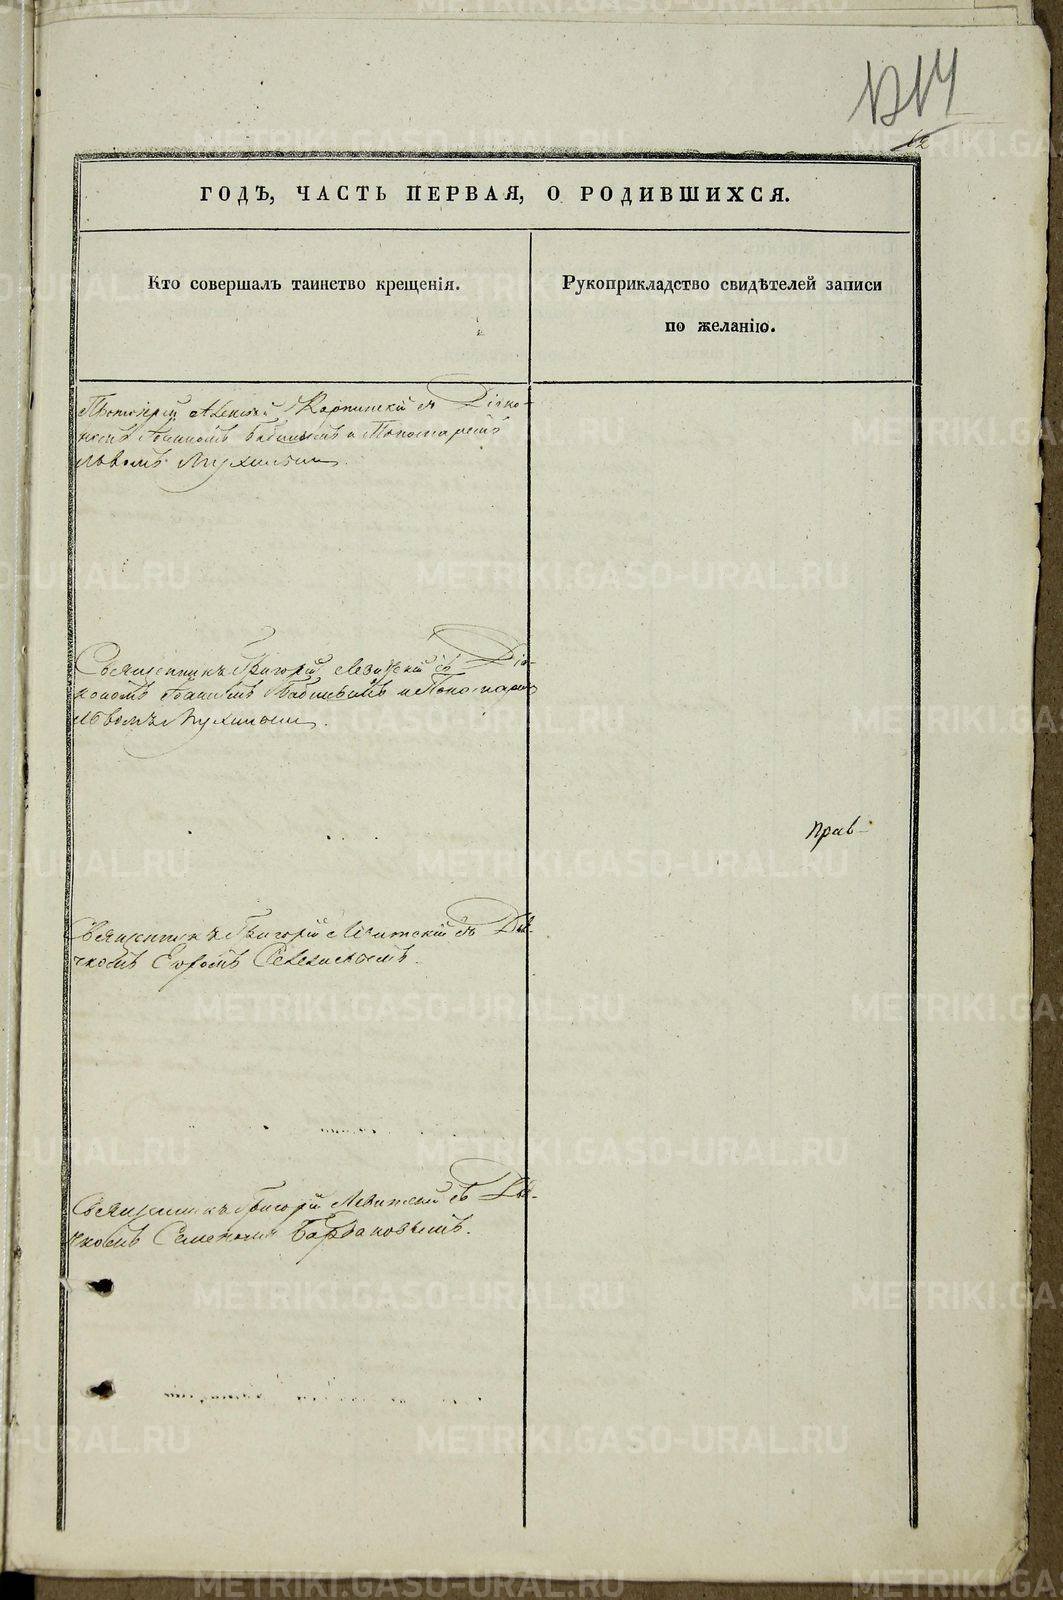 14
12
ГОДЪ, ЧАСТЬ ПЕРВАЯ, О РОДИВШИХСЯ.
Кто совершалъ таинство крещенія.
Рукоприкладство свидѣтелей записи
по желанію.
Протоіерей Алексѣй Карпинскій съ Діако-
номъ Іоанномъ Бабинымъ и Пономаремъ
Львомъ Мухинымъ.
Священникъ Григорій Левитскій съ Діа-
кономъ Іоанномъ Бабинымъ и Пономаремъ
Львомъ Мухинымъ.
Прав-
Священникъ Григорій Левитскій съ Дья-
чкомъ
Священникъ Григорій Левитскій съ Дья-
чкомъ Семеномъ Бардаковымъ.
METRIKI.GASO-URAL.RU